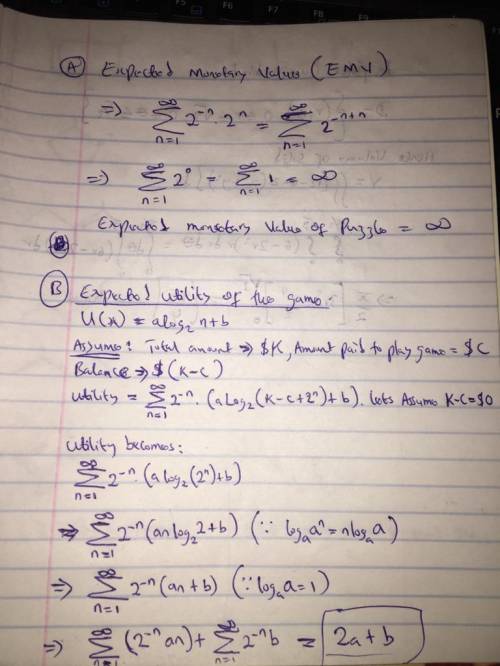 (A) Expected Monetary Values (EMV)
=> ∞∑n=1 2^-n · 2^n = ∞∑n=1 2^-n+n
=> ∞∑n=1 2^0 = ∞∑n=1 1 = ∞
Expected monetary value of Puzzle = ∞
(B) Expected utility of the game:-
U(x) = alog₂ n+b
Assume: Total amount => $K, Amount paid to play game = $C
Balance => $(K-C)
Utility = ∞∑n=1 2^-n · (aLog₂(K-C+2^n)+b). Lets Assume K-C=$0
Utility becomes:
∞∑n=1 2^-n · (alog₂(2^n)+b)
=> ∞∑n=1 2^-n(anlog₂2+b) (∵ logₐa^n = nlogₐa)
=> ∞∑n=1 2^-n(an+b) (∵logₐa=1)
=> ∞∑n=1 (2^-n an) + ∞∑n=1 2^-n b = 2a+b